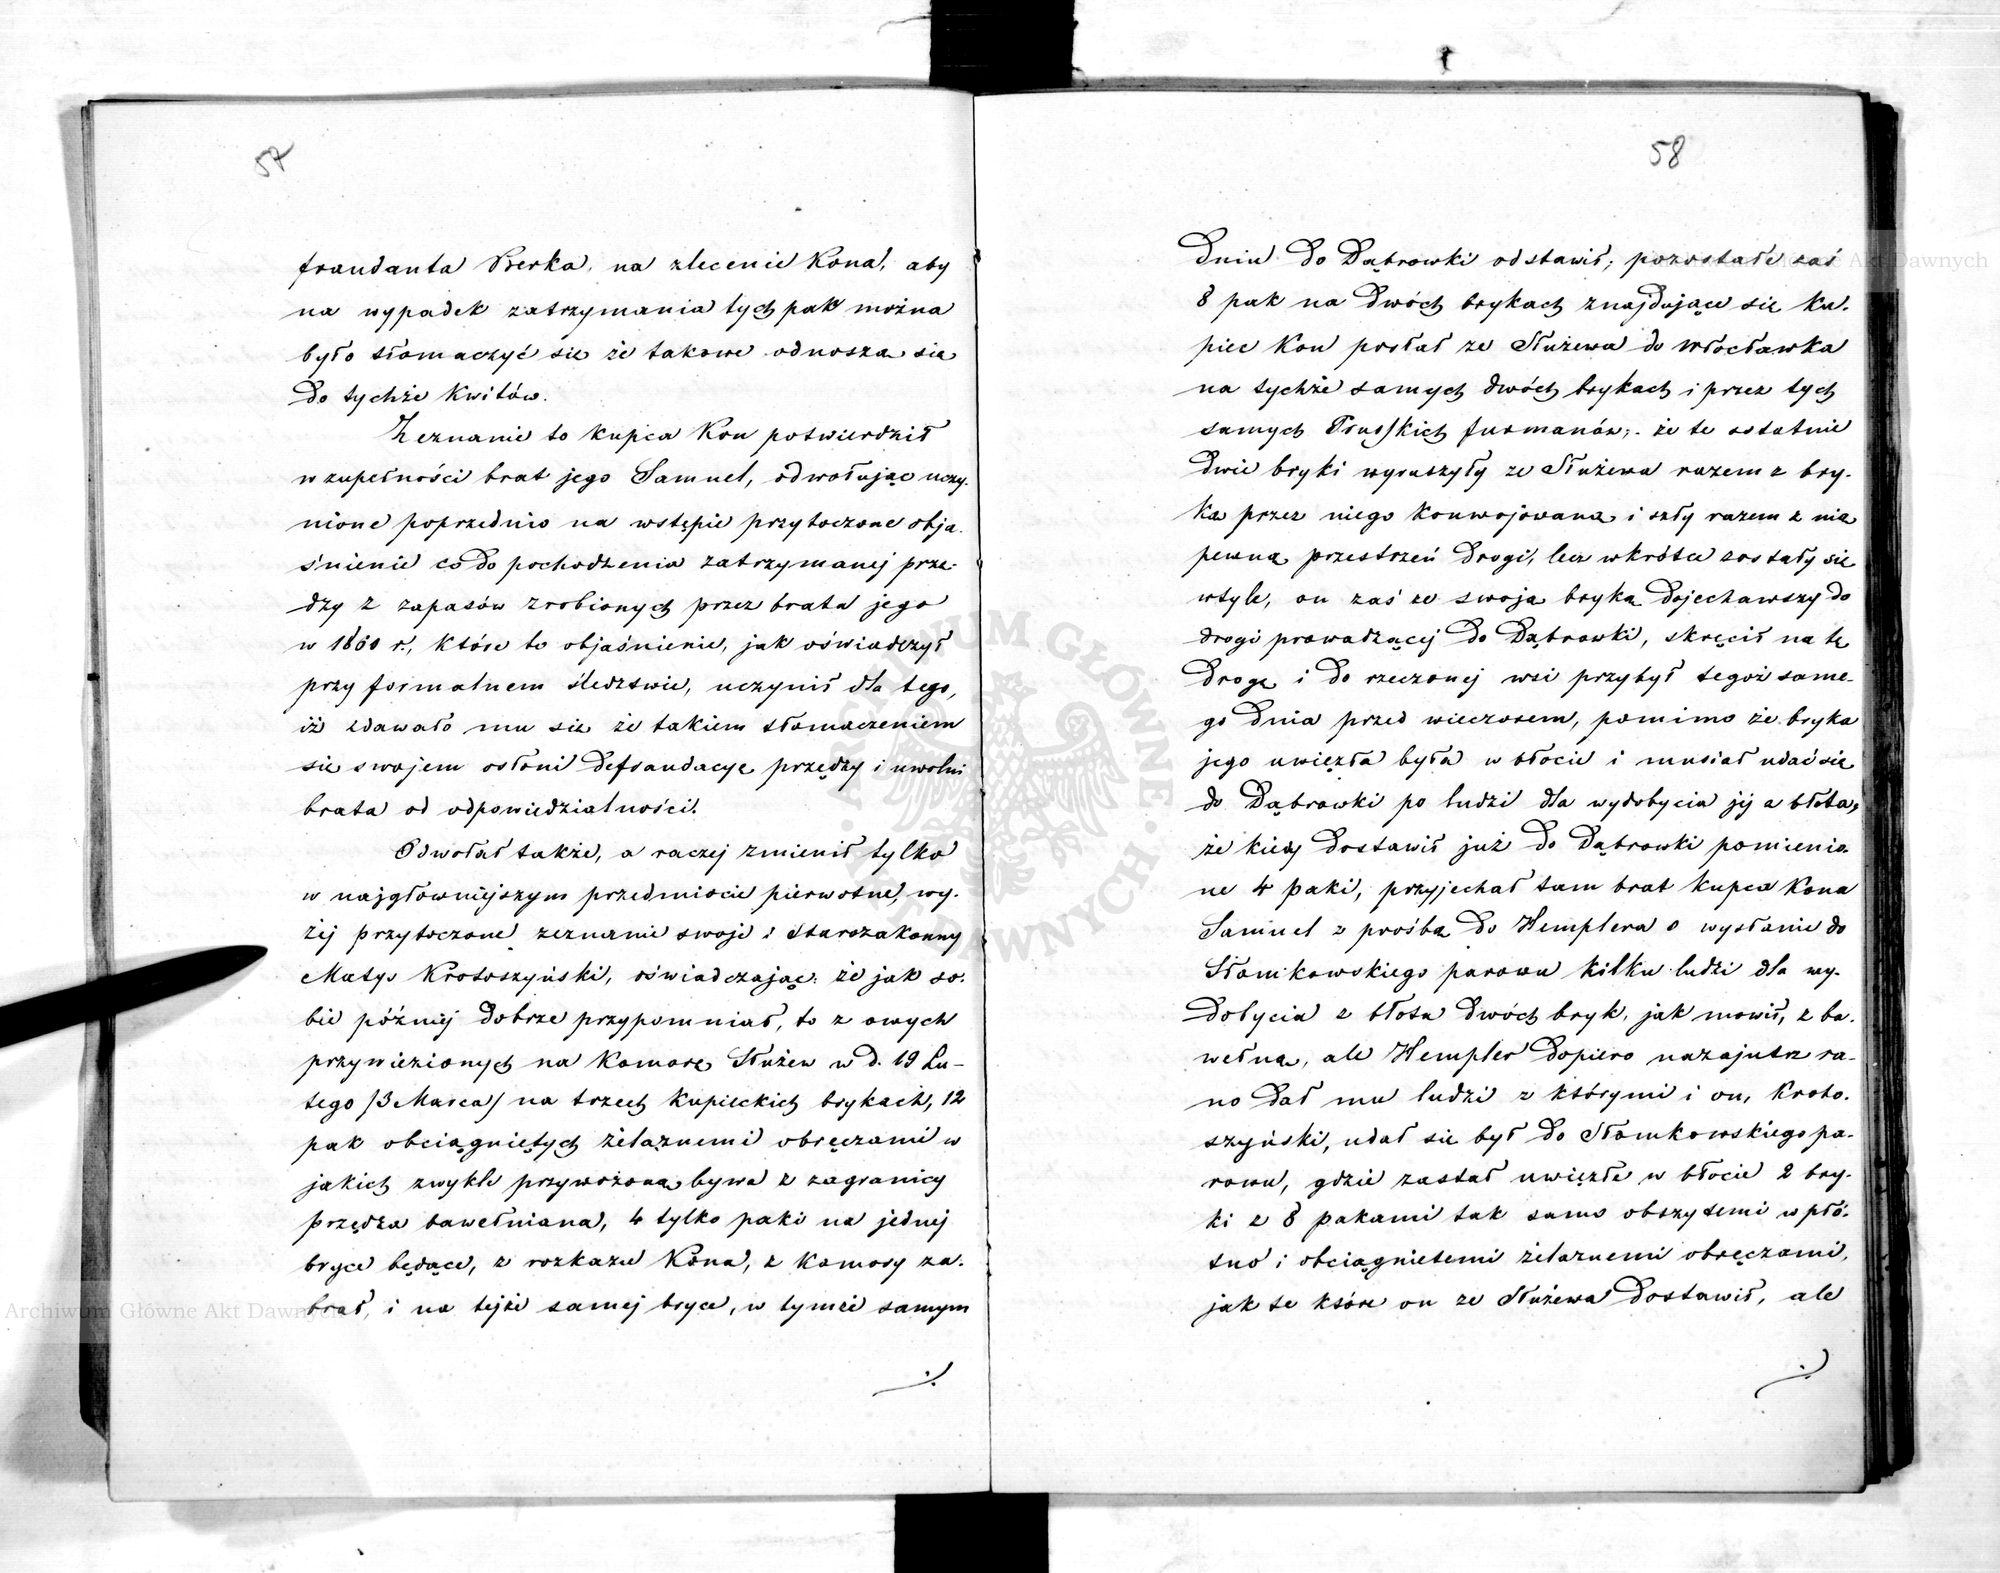 57
fraudanta Berka, na zlecenie Kona, aby
na wypadek zatrzymania tych pak można
było tłomaczyć się że takowe odnoszą się
do tychże kwitów.
Zeznanie to kupca Kon potwierdził
w zupełności brat jego Samuel, odwołując uczy-
nione poprzednio na wstępie przytoczone obja-
śnienie co do pochodzenia zatrzymanej przę-
dzy z zapasów zrobionych przez brata jego
w 1860 r., które to objaśnienie, jak oświadczył
przy formalnem śledztwie, uczynił dla tego,
iż zdawało mu się że takiem tłomaczeniem
się swojem osłoni defraudacyę przędzy i uwolni
brata od odpowiedzialności.
Odwołał także, a raczej zmienił tylko
w najgłówniejszym przedmiocie pierwotne, wy-
żej przytoczone zeznanie swoje i starozakonny
Matys Krotoszyński, oświadczając: że jak so-
bie później dobrze przypomniał, to z owych
przywiezionych na Komorę Służew w d. 19 Lu-
tego /3 Marca/ na trzech kupieckich brykach, 12
pak obciągniętych żelaznemi obręczami w
jakich zwykle przywożoną bywa z zagranicy
przędza bawełniana, 4 tylko paki na jednej
bryce będące, z rozkazu Kona, z Komory za-
brał, i na tejże samej bryce, w tymże samym
58
dniu do Dąbrowki odstawił; pozostałe zaś
8 pak na dwóch brykach znajdujące się ku-
piec Kon posłał ze Służewa do Włocławka
na tychże samych dwóch brykach i przez tych
samych Pruskich furmanów; że te ostatnie
dwie bryki wyruszyły ze Służewa razem z bry-
ką przez niego konwojowaną i szły razem z nią
pewną przestrzeń drogi, lecz wkrótce zostały się
wtyle, on zaś ze swoją bryką dojechawszy do
drogi prowadzącej do Dąbrowki, skręcił na tę
drogę i do rzeczonej wsi przybył tegoż same-
go dnia przed wieczorem, pomimo że bryka
jego uwięzła była w błocie i musiał udać się
do Dąbrowki po ludzi dla wydobycia jej z błota,
że kiedy dostawił już do Dąbrowki pomienio-
ne 4 paki, przyjechał tam brat kupca Kona
Samuel z prośbą do Hemplera o wysłanie do
Słomkowskiego parowu kilku ludzi dla wy-
dobycia z błota dwóch bryk, jak mówił, z ba-
wełną, ale Hempler dopiero nazajutrz ra-
no dał mu ludzi z którymi i on, Kroto-
szyński, udał się był do Słomkowskiego pa-
rowu, gdzie zastał uwięzłe w błocie 2 bry-
ki z 8 pakami tak samo obszytemi w płó-
tno i obciągnietemi żelaznemi obręczami,
jak te które on ze Służewa dostawił, ale
Archiwum Główne Akt Dawnych